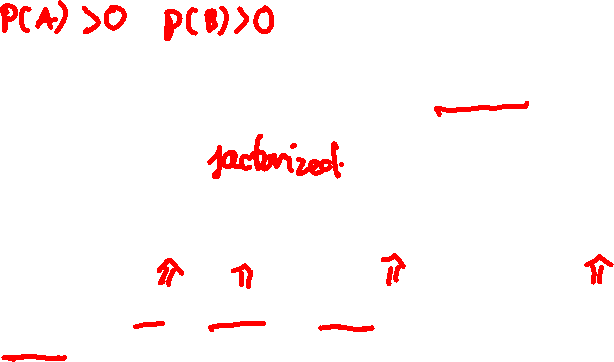 P(A) >0 P(B)>0
factorized.
⇑ ⇑ ⇑ ⇑